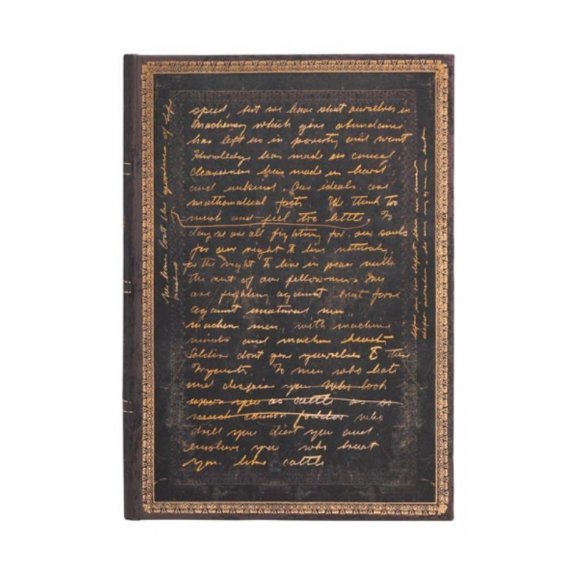 speed, but we have shut ourselves in
Machinery which gives abundance
has left us in poverty and want
Knowledge has made us cynical
cleverness has made us hard
and unkind. Our ideals are
mathematical facts. We think to
much and feel too little. To
day we are all fighting for our souls
for our right to live naturally
for the right to live in peace with
the rest of our fellowmen. We
are fighting against brut force
against unnatural men
machine men, with machine
minds and machine hearts
Soldiers dont give yourselves to these
To men who hate
and despise you who look
upon you as cattle as
cannon fodder who
drill you diet you and
enslave you who treat
you like cattle
We have lost the